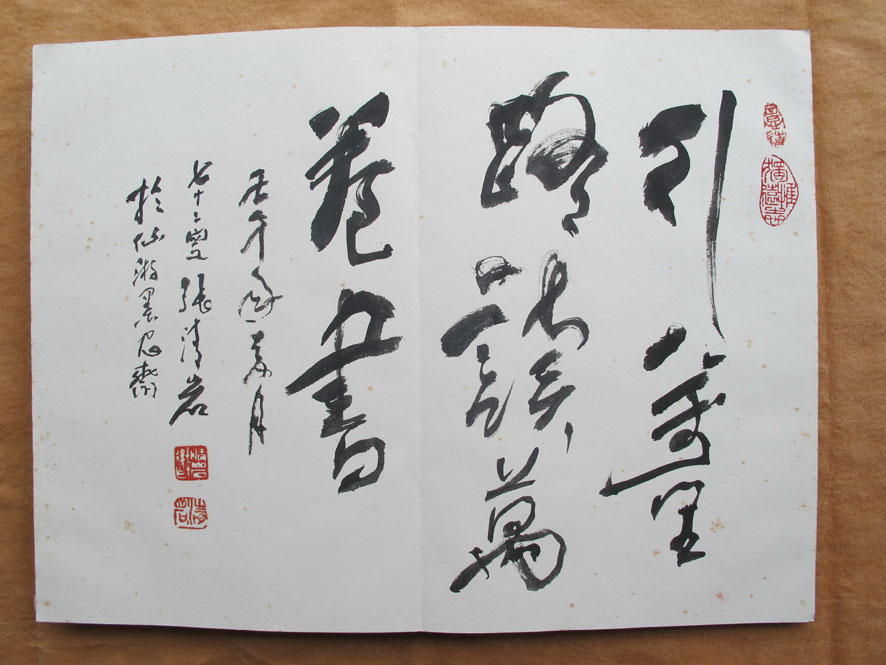 行萬里
路讀萬
卷書
壬午夏月
七十二叟張清岩
於仙游墨齋
清岩